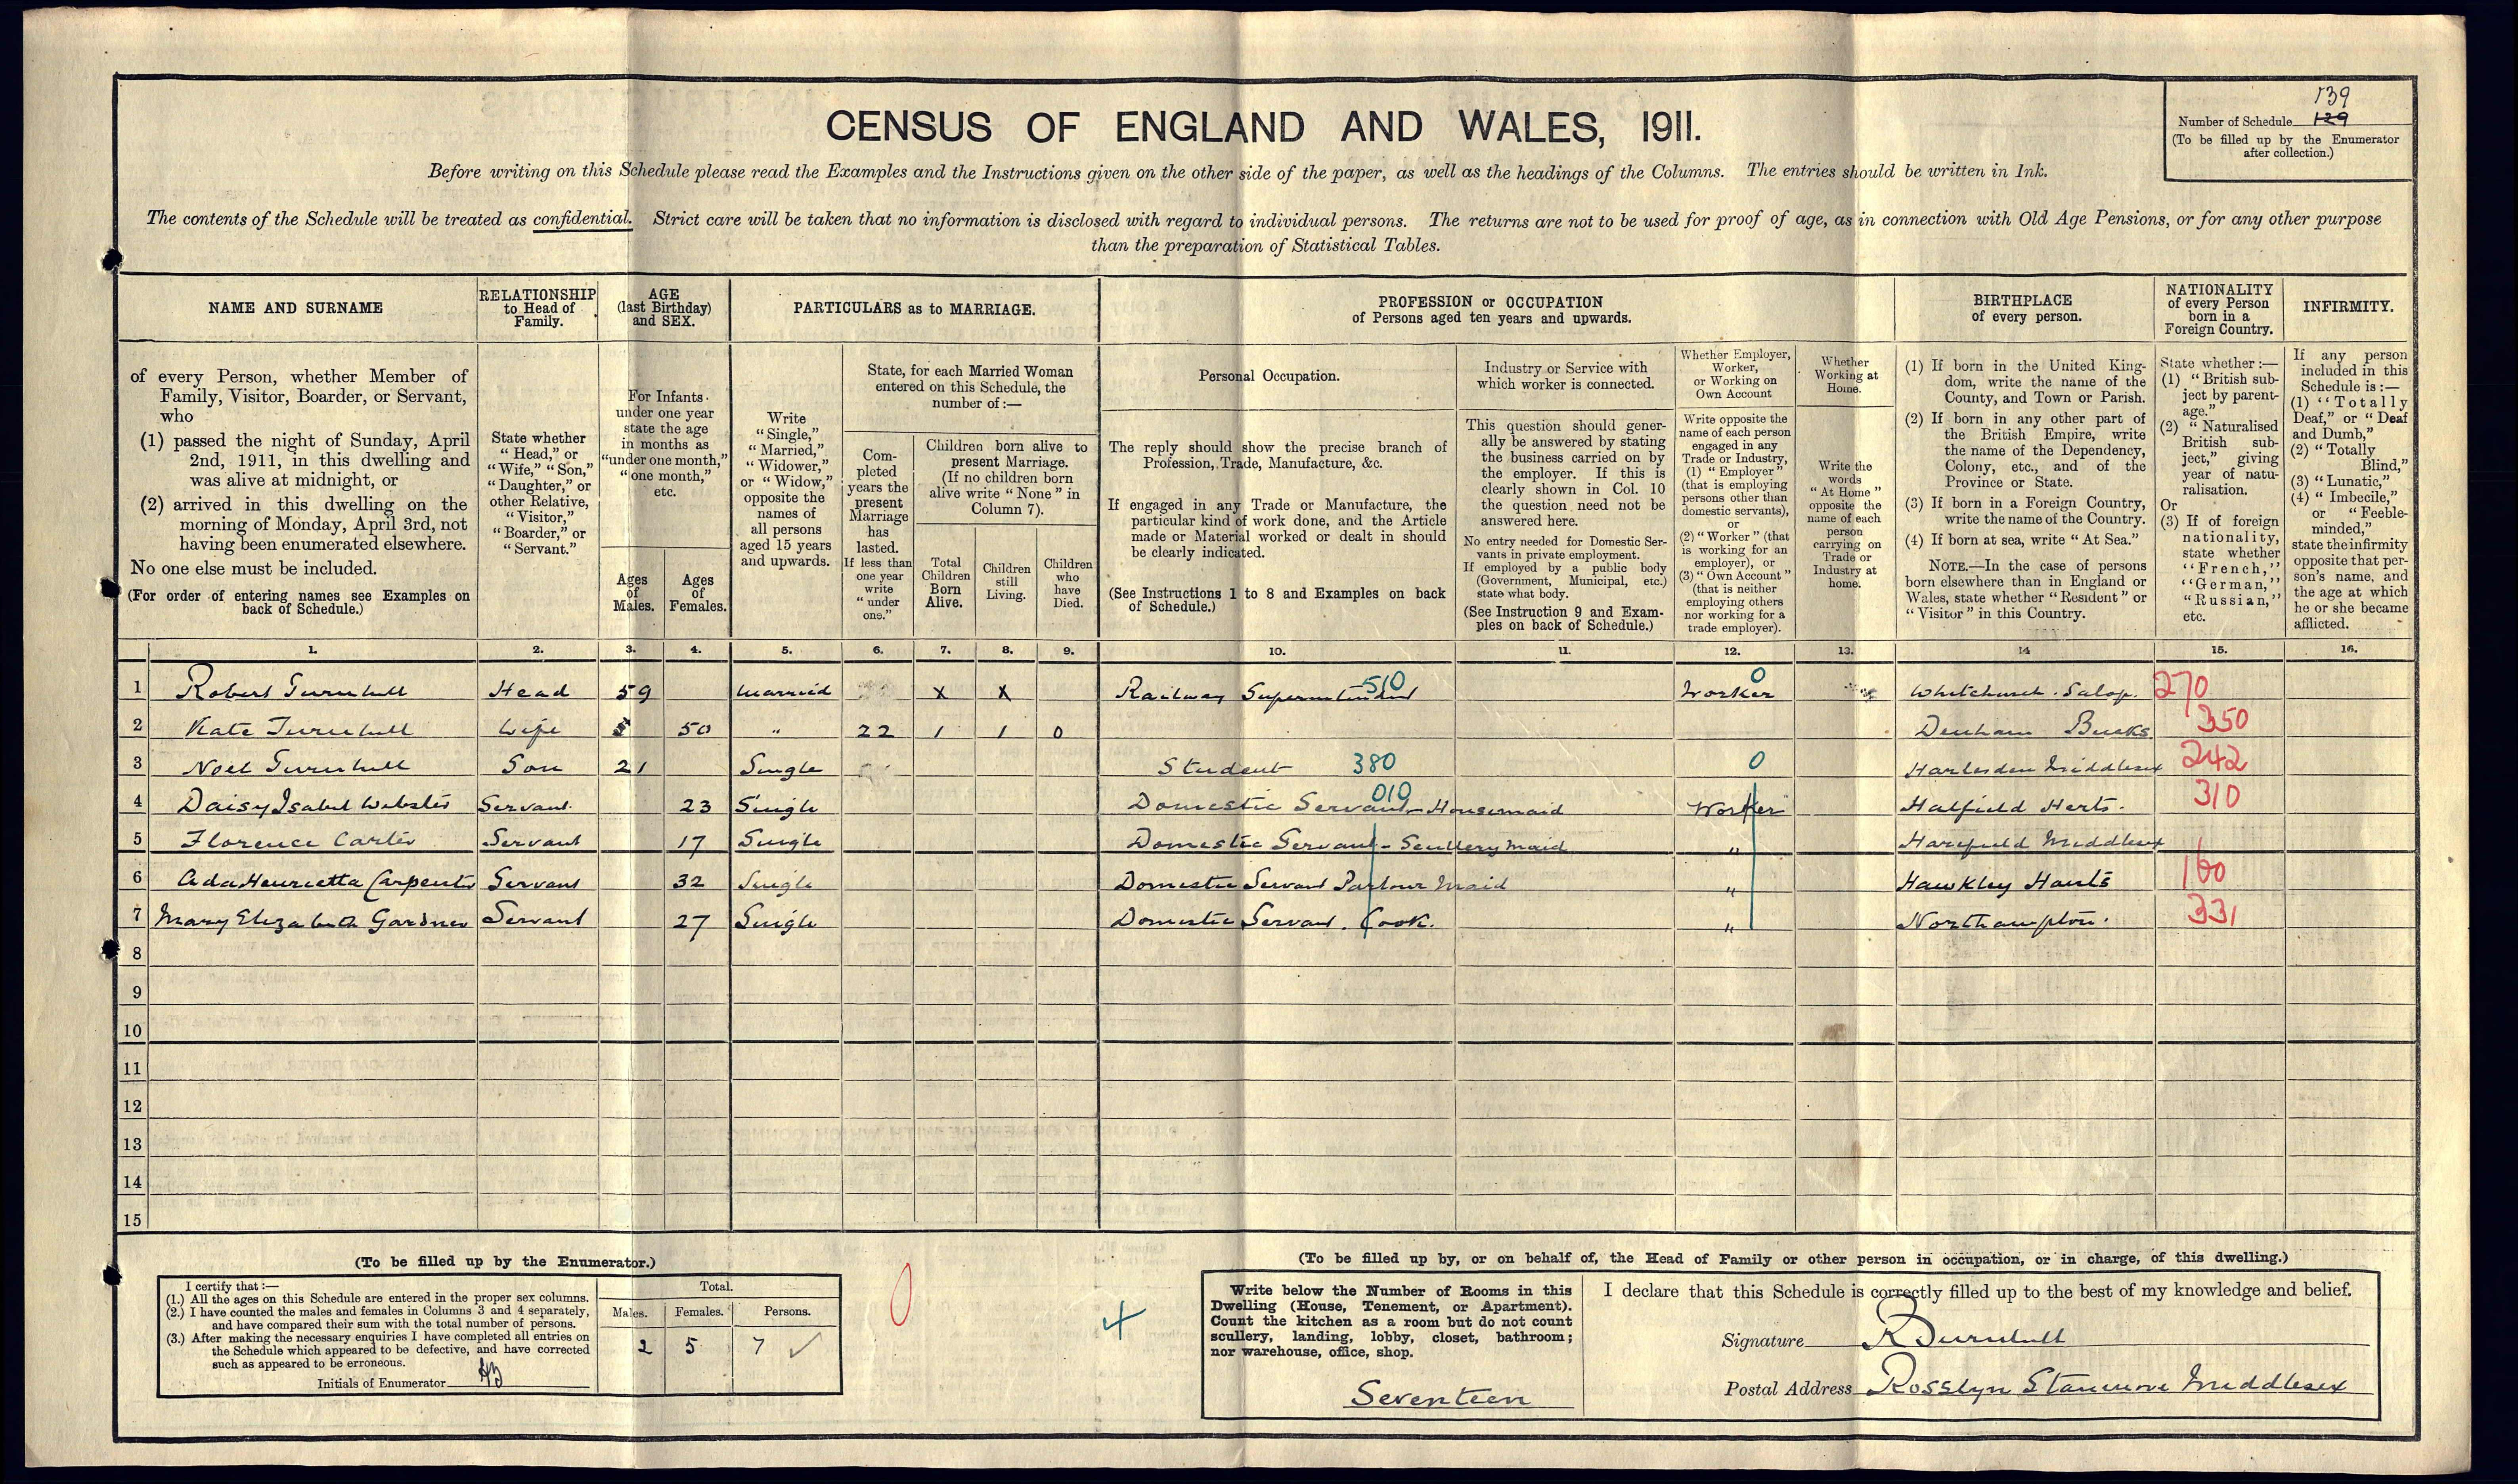 139
Number of Schedule 129
(To be filled up by the Enumerator
after collection.)
CENSUS OF ENGLAND AND WALES, 1911.
Before writing on this Schedule please read the Examples and the Instructions given on the other side of the paper, as well as the headings of the Columns. The entries should be written in Ink.
The contents of the Schedule will be treated as confidential. Strict care will be taken that no information is disclosed with regard to individual persons. The returns are not to be used for proof of age, as in connection with Old Age Pensions, or for any other purpose
than the preparation of Statistical Tables.
NAME AND SURNAME
of every Person, whether Member of
Family, Visitor, Boarder, or Servant,
who
(1) passed the night of Sunday, April
2nd, 1911, in this dwelling and
was alive at midnight, or
(2) arrived in this dwelling on the
morning of Monday, April 3rd, not
having been enumerated elsewhere.
No one else must be included.
(For order of entering names see Examples on
back of Schedule.)
RELATIONSHIP
to Head of
Family.
State whether
"Head," or
"Wife," "Son,"
"Daughter," or
other Relative,
"Visitor,"
"Boarder," or
"Servant."
AGE
(last Birthday)
and SEX.
For Infants
under one year
state the age
in months as
"under one month,"
"one month,"
etc.
Ages
of
Males.
Ages
of
Females.
PARTICULARS as to MARRIAGE.
Write
"Single,"
"Married,"
"Widower,"
or "Widow,"
opposite the
names of
all persons
aged 15 years
and upwards.
State, for each Married Woman
entered on this Schedule, the
number of:—
Com-
pleted
years the
present
Marriage
has
lasted.
If less than
one year
write
"under
one."
Children born alive to
present Marriage.
(If no children born
alive write "None" in
Column 7).
Total
Children
Born
Alive.
Children
still
Living.
Children
who
have
Died.
PROFESSION or OCCUPATION
of Persons aged ten years and upwards.
Personal Occupation.
The reply should show the precise branch of
Profession, Trade, Manufacture, &c.
If engaged in any Trade or Manufacture, the
particular kind of work done, and the Article
made or Material worked or dealt in should
be clearly indicated.
(See Instructions 1 to 8 and Examples on back
of Schedule.)
Industry or Service with
which worker is connected.
This question should gener-
ally be answered by stating
the business carried on by
the employer. If this is
clearly shown in Col. 10
the question need not be
answered here.
No entry needed for Domestic Ser-
vants in private employment.
If employed by a public body
(Government, Municipal, etc.)
state what body.
(See Instruction 9 and Exam-
ples on back of Schedule.)
Whether Employer,
Worker,
or Working on
Own Account
Write opposite the
name of each person
engaged in any
Trade or Industry,
(1) "Employer"
(that is employing
persons other than
domestic servants),
or
(2) "Worker" (that
is working for an
employer), or
(3) "Own Account"
(that is neither
employing others
nor working for a
trade employer).
Whether
Working at
Home.
Write the
words
"At Home"
opposite the
name of each
person
carrying on
Trade or
Industry at
home.
BIRTHPLACE
of every person.
(1) If born in the United King-
dom, write the name of the
County, and Town or Parish.
(2) If born in any other part of
the British Empire, write
the name of the Dependency,
Colony, etc., and of the
Province or State.
(3) If born in a Foreign Country,
write the name of the Country.
(4) If born at sea, write "At Sea."
NOTE.—In the case of persons
born elsewhere than in England or
Wales, state whether "Resident" or
"Visitor" in this Country.
NATIONALITY
of every Person
born in a
Foreign Country.
State whether:—
(1) "British sub-
ject by parent-
age."
(2) "Naturalised
British sub-
ject," giving
year of natu-
ralisation.
Or
(3) If of foreign
nationality,
state whether
"French,"
"German,"
"Russian,"
etc.
INFIRMITY.
If any person
included in this
Schedule is:—
(1) "Totally
Deaf," or "Deaf
and Dumb,"
(2) "Totally
Blind,"
(3) "Lunatic,"
(4) "Imbecile,"
or "Feeble-
minded,"
state the infirmity
opposite that per-
son's name, and
the age at which
he or she became
afflicted.
1. 2. 3. 4. 5. 6. 7. 8. 9. 10. 11. 12. 13. 14 15. 16.
1 Robert Turnbull Head 59 Married X X Railway Superintendent 510 Worker 0 Whitchurch. Salop. 270
2 Kate Turnbull Wife 50 " 22 1 1 0 Denham Bucks 350
3 Noel Turnbull Son 21 Single Student 380 0 Harlesden Middlesex 242
4 Daisy Isabel Webster Servant. 23 Single Domestic Servant - Housemaid 010 Worker Hatfield Herts. 310
5 Florence Carter Servant 17 Single Domestic Servant - Scullery Maid " Harefield Middlesex
6 Ada Henrietta Carpenter Servant 32 Single Domestic Servant Parlour Maid " Hawkley Hants 160
7 Mary Elizabeth Gardner Servant 27 Single Domestic Servant. Cook. " Northampton. 331
8
9
10
11
12
13
14
15
(To be filled up by the Enumerator.)
I certify that:—
(1.) All the ages on this Schedule are entered in the proper sex columns.
(2.) I have counted the males and females in Columns 3 and 4 separately,
and have compared their sum with the total number of persons.
(3.) After making the necessary enquiries I have completed all entries on
the Schedule which appeared to be defective, and have corrected
such as appeared to be erroneous.
Initials of Enumerator
Total.
Males. Females. Persons.
2 5 7
0
4
(To be filled up by, or on behalf of, the Head of Family or other person in occupation, or in charge, of this dwelling.)
Write below the Number of Rooms in this
Dwelling (House, Tenement, or Apartment).
Count the kitchen as a room but do not count
scullery, landing, lobby, closet, bathroom;
nor warehouse, office, shop.
Seventeen
I declare that this Schedule is correctly filled up to the best of my knowledge and belief.
Signature R Turnbull
Postal Address Rosslyn Stanmore Middlesex